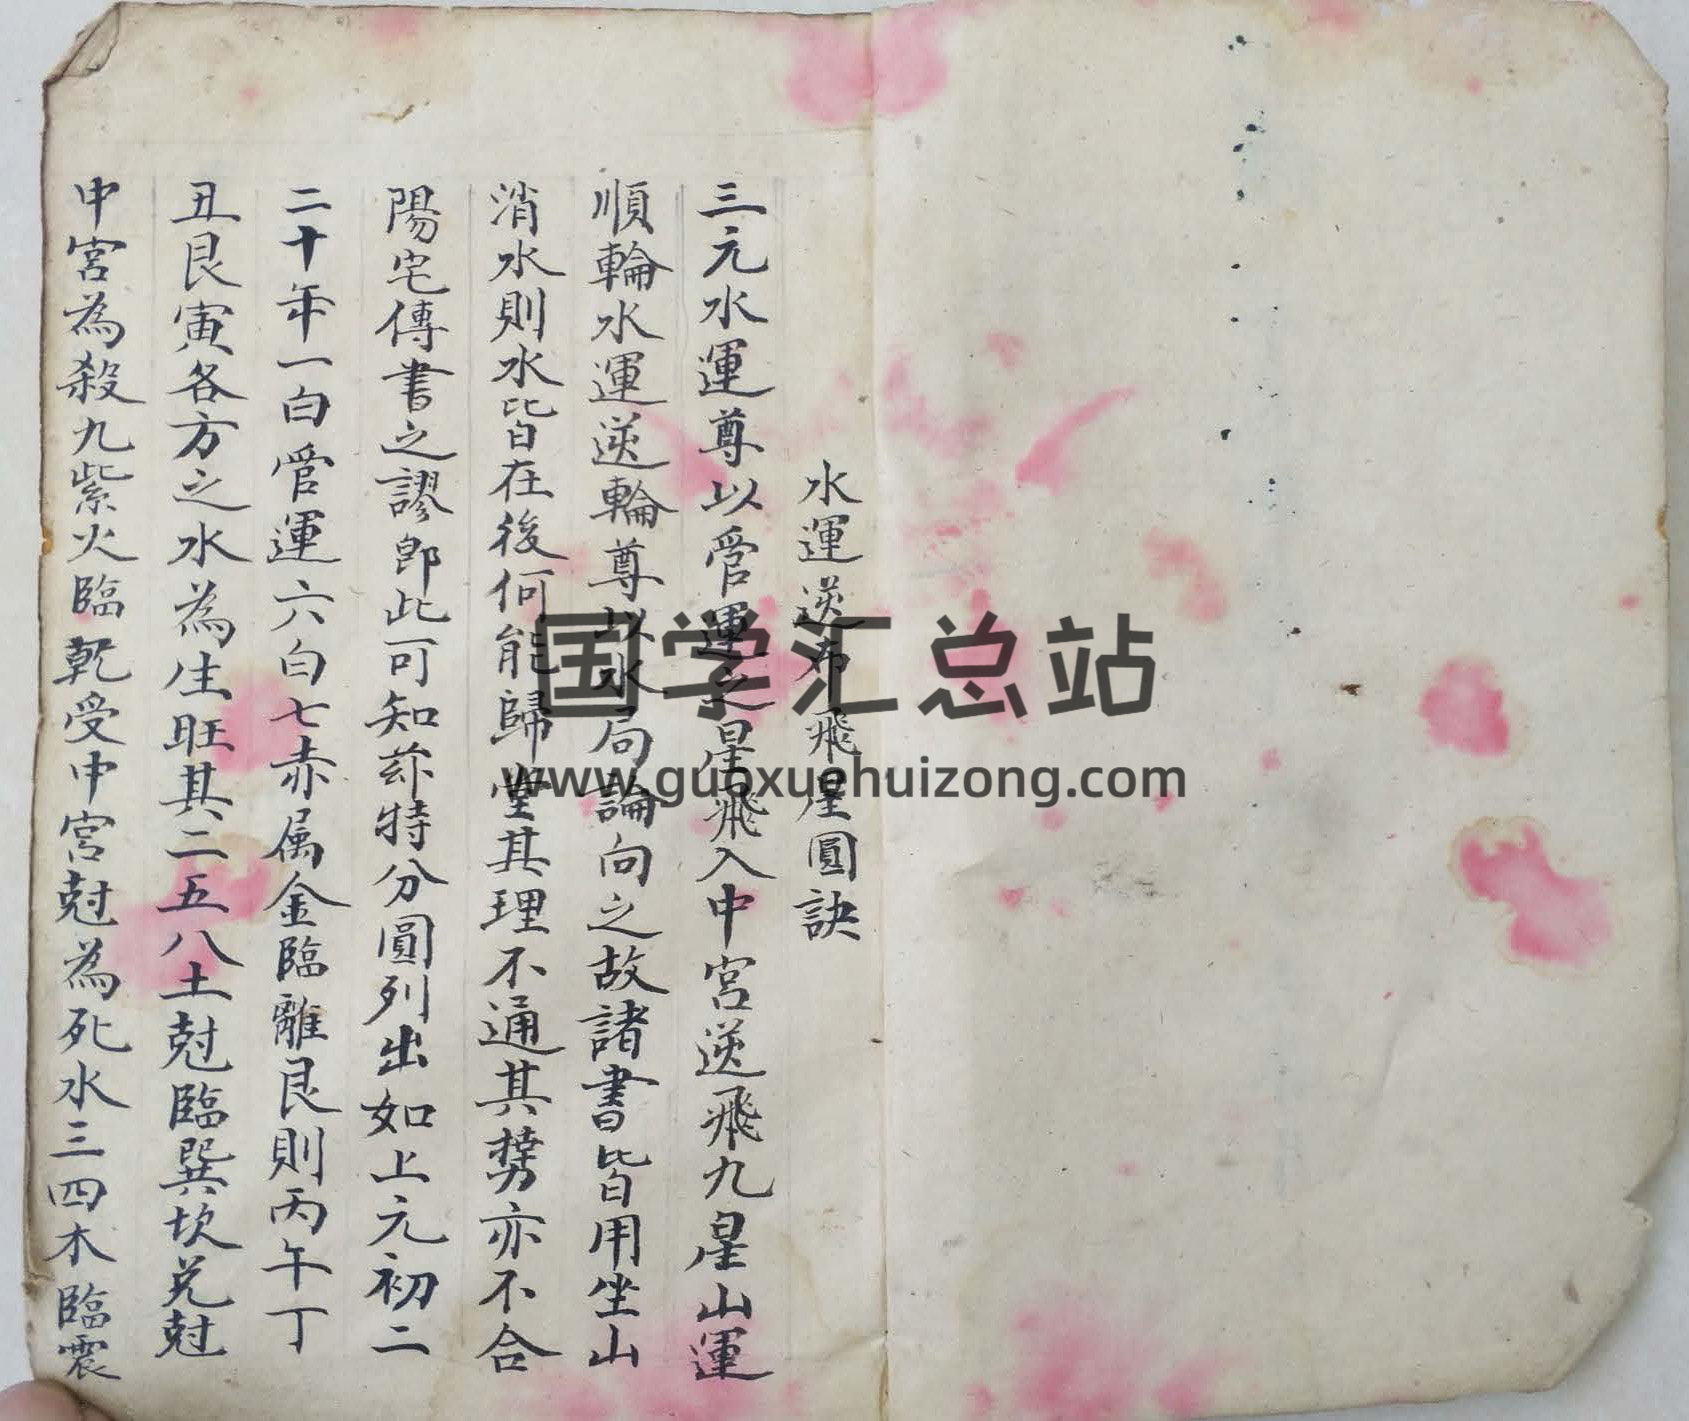 水運逆布飛星圓訣
三元水運尊以管運之星飛入中宮逆飛九星山運
順輪水運逆輪尊以水局論向之故諸書皆用坐山
消水則水皆在後何能歸堂其理不通其势亦不合
陽宅傳書之謬即此可知茲特分圓列出如上元初二
二十年一白管運六白七赤属金臨離艮則丙午丁
丑艮寅各方之水為生旺其二五八土尅臨巽坎兑尅
中宮為殺九紫火臨乾受中宮尅為死水三四木臨震
国学汇总站
www.guoxuehuizong.com